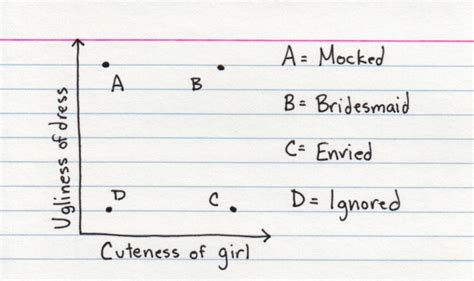 A = Mocked
A
B
B = Bridesmaid
Ugliness of dress
C = Envied
D
C
D = Ignored
Cuteness of girl